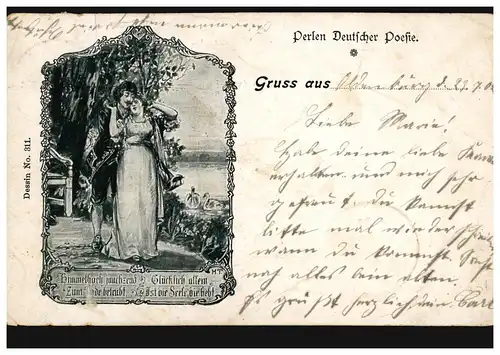 Perlen Deutscher Poesie.
Gruss aus Oldenburg d. 23.7.
Liebe Marie!
Hab deine liebe Karte
erhalten und mich sehr
gefreut du kannst
bitte mal wieder
wann du kommst
noch alles beim alten.
Es grüßt herzlich dein Carl
Dessin No. 311.
Himmelhoch jauchzend Glücklich allein
Zum Tode betrübt Ist die Seele die liebt